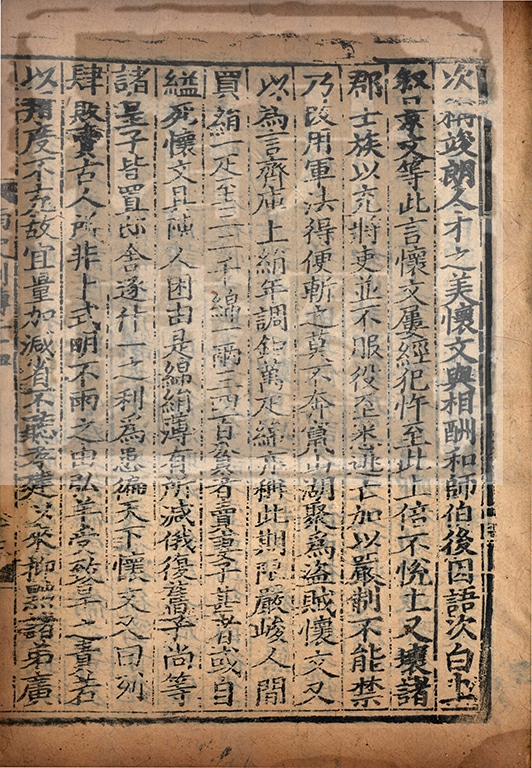 次稱竣朗人才之美懷文與相酬和師伯後因語次白上
叙景文等此言懷文屢經犯忤至此上倍不悅上又壞諸
郡士族以充將吏並不服役至悉逃亡加以嚴制不能禁
乃改用軍法得便斬之莫不奔竄山湖聚爲盜賊懷文又
以為言齊庫上絹年調鉅萬疋綿亦稱此期限嚴峻人間
買絹一疋至二三千綿一兩三四百貧者賣妻子甚者或自
縊死懷文具陳人困由是綿絹薄有所減俄復舊子尚等
諸皇子皆置邸舍逐什一之利爲患徧天下懷文又曰列
肆販賣古人所非卜式明不雨之由弘羊受致旱之責若
以用度不充故宜量加減省不聽孝建以來抑黜諸弟廣